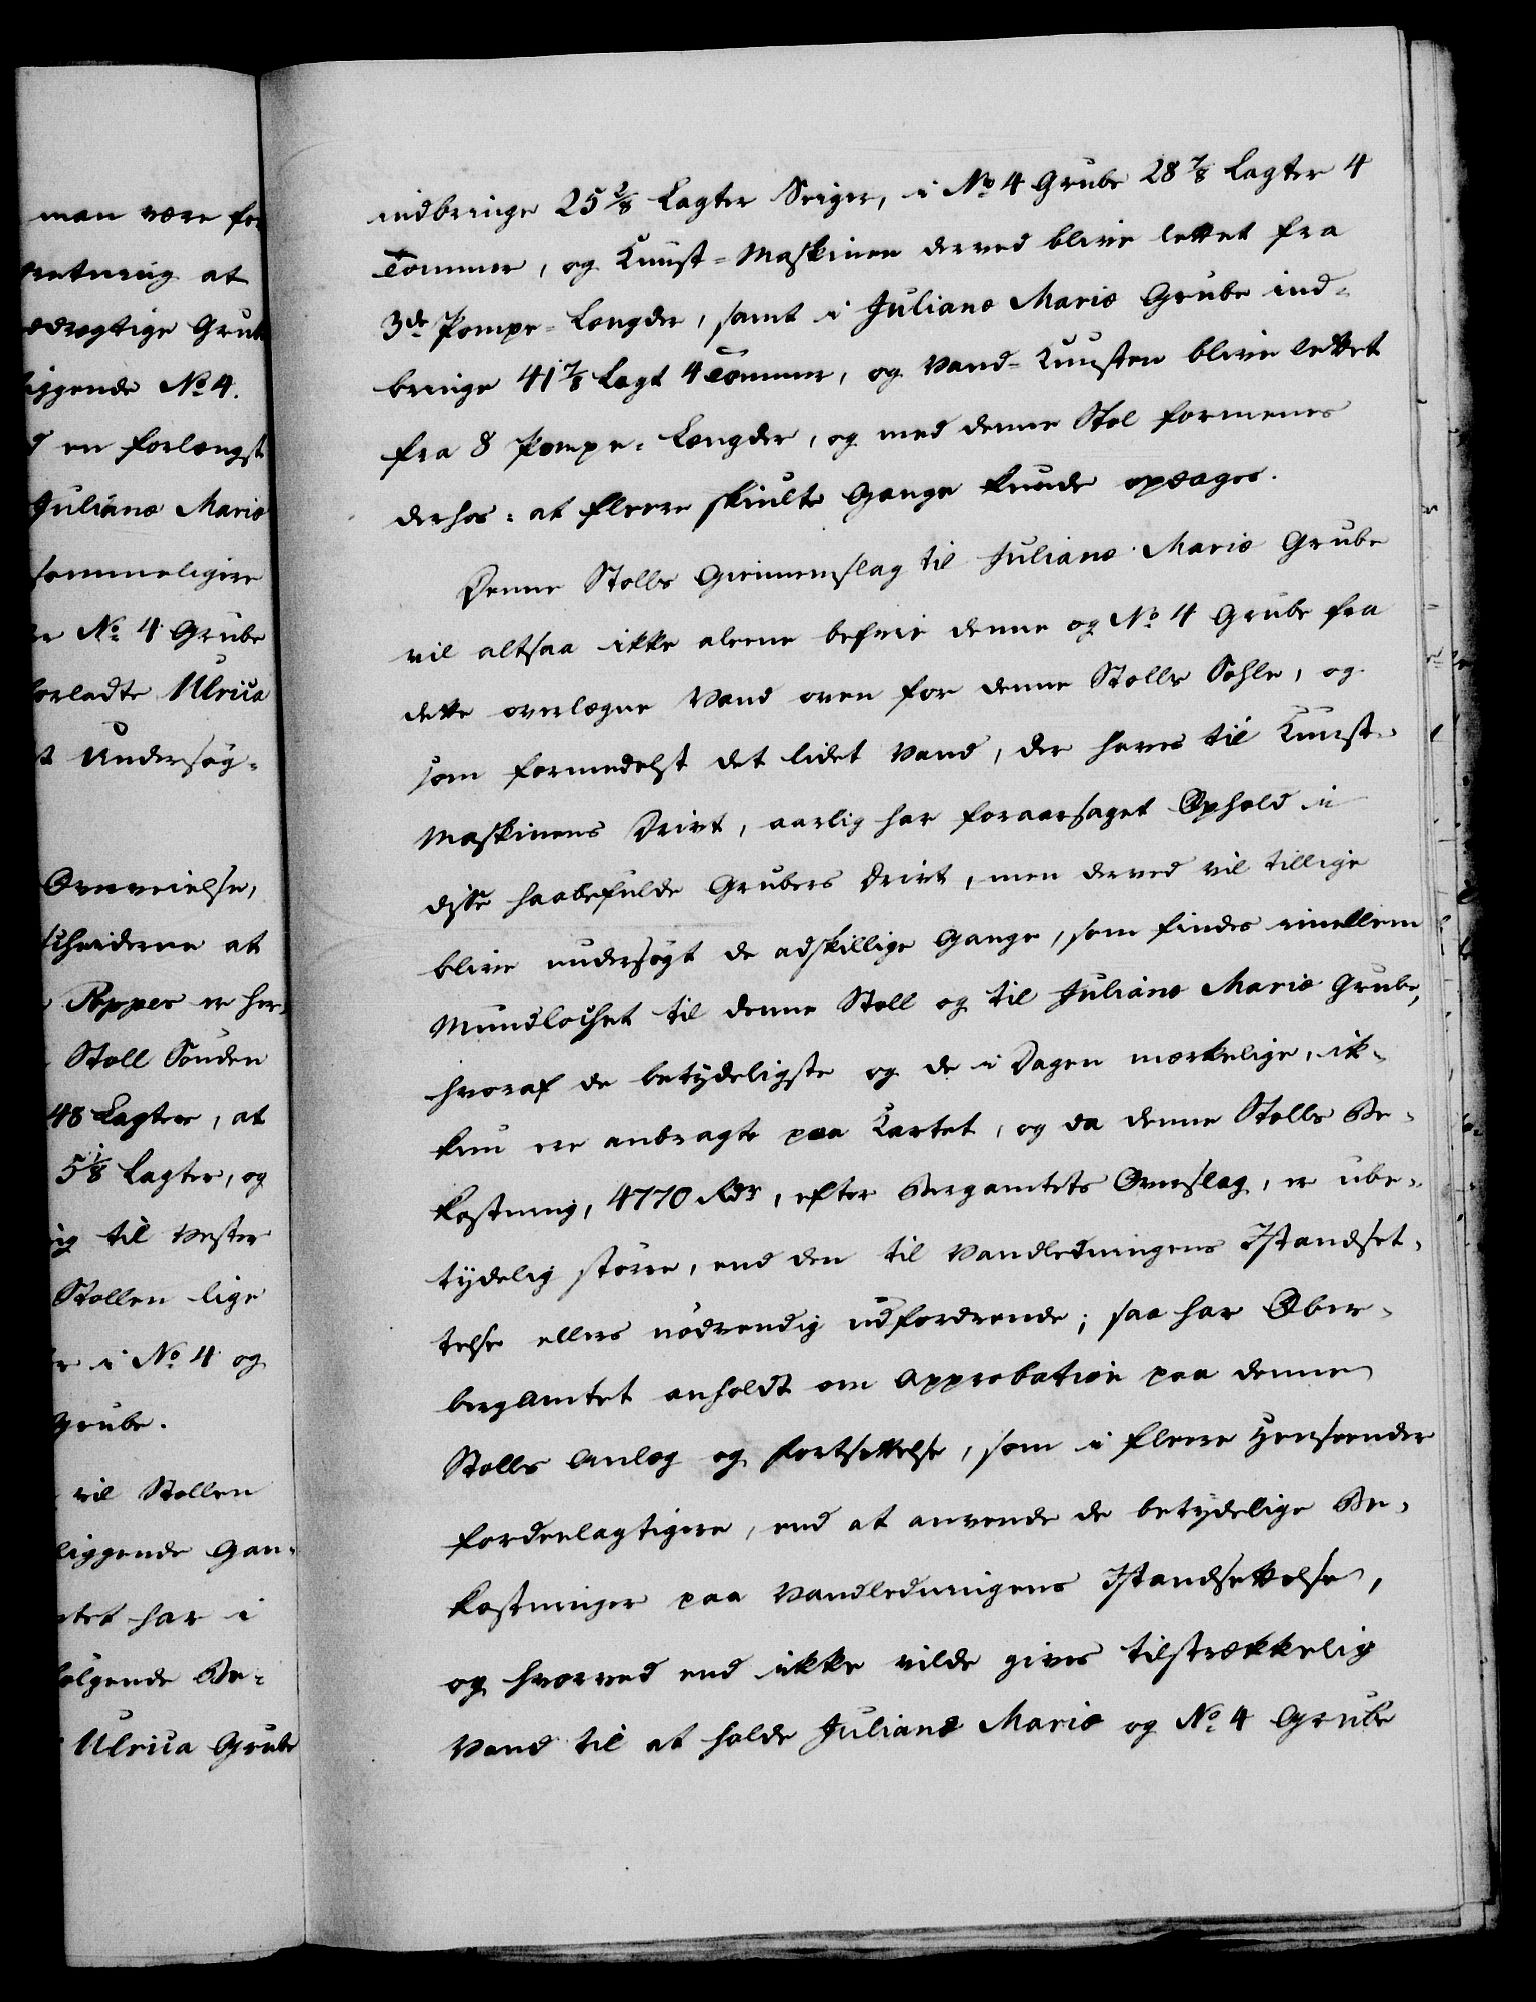 man være for
retning at
drægtige Grub
iggende No 4.
d en forlængst
Juliane Mariæ
sommeligere
re No 4 Grube
forladte Ulrica
st Undersøg-
Overveielse,
scheiderne at
Popper er her-
Stoll Souden
48 Lagter, at
5 1/8 Lagter, og
ig til Vester
Stollen lige
er i No 4 og
Grube.
vil Stollen
liggende Gan-
tet har i
følgende Be-
Ulrica Grube
indbringe 25 2/8 Lagter Seiger, i No 4 Grube 28 7/8 Lagter 4
Tommer, og Kunst-Maskinen derved blive lettet fra
3de Pompe-Længder, samt i Juliane Mariæ Grube ind-
bringe 41 7/8 Lagt 4 Tommer, og Vand-Kunsten blive lettet
fra 8 Pompe-Længder, og med denne Stol formenes
derhos: at fleere skiulte Gange kunde opdages.
Denne Stolls Giennemslag til Juliane Mariæ Grube
vil altsaa ikke aleene befrie denne og No 4 Grube fra
dette overlegne Vand oven for denne Stolls Sohle, og
som formedelst det lidet Vand, der haves til Kunst-
Maskinens Drivt, aarlig har foraarsaget Ophold i
disse haabefulde Grubers Drivt, men derved vil tillige
blive undersøgt de adskillige Gange, som findes imellem
Mundlochet til denne Stoll og til Juliane Mariæ Grube,
hvoraf de betydeligste og de i Dagen mærkelige, ik-
kun ere anbragte paa Kartet, og da denne Stolls Be-
kostning, 4770 Rdr, efter Bergamtets Overslag, er ube-
tydelig større, end den til Vandledningens Istandset-
telse ellers nødvendig udfordrende; saa har Ober-
bergAmtet anholdt om Approbation paa denne
Stolls Anlæg og Fortsettelse, som i fleere Henseender
fordeelagtigere, end at anvende de betydelige Be-
kostninger paa Vandledningens Istandsettelse,
og hvorved end ikke vilde gives tilstrækkelig
Vand til at holde Juliane Mariæ og No 4 Grube